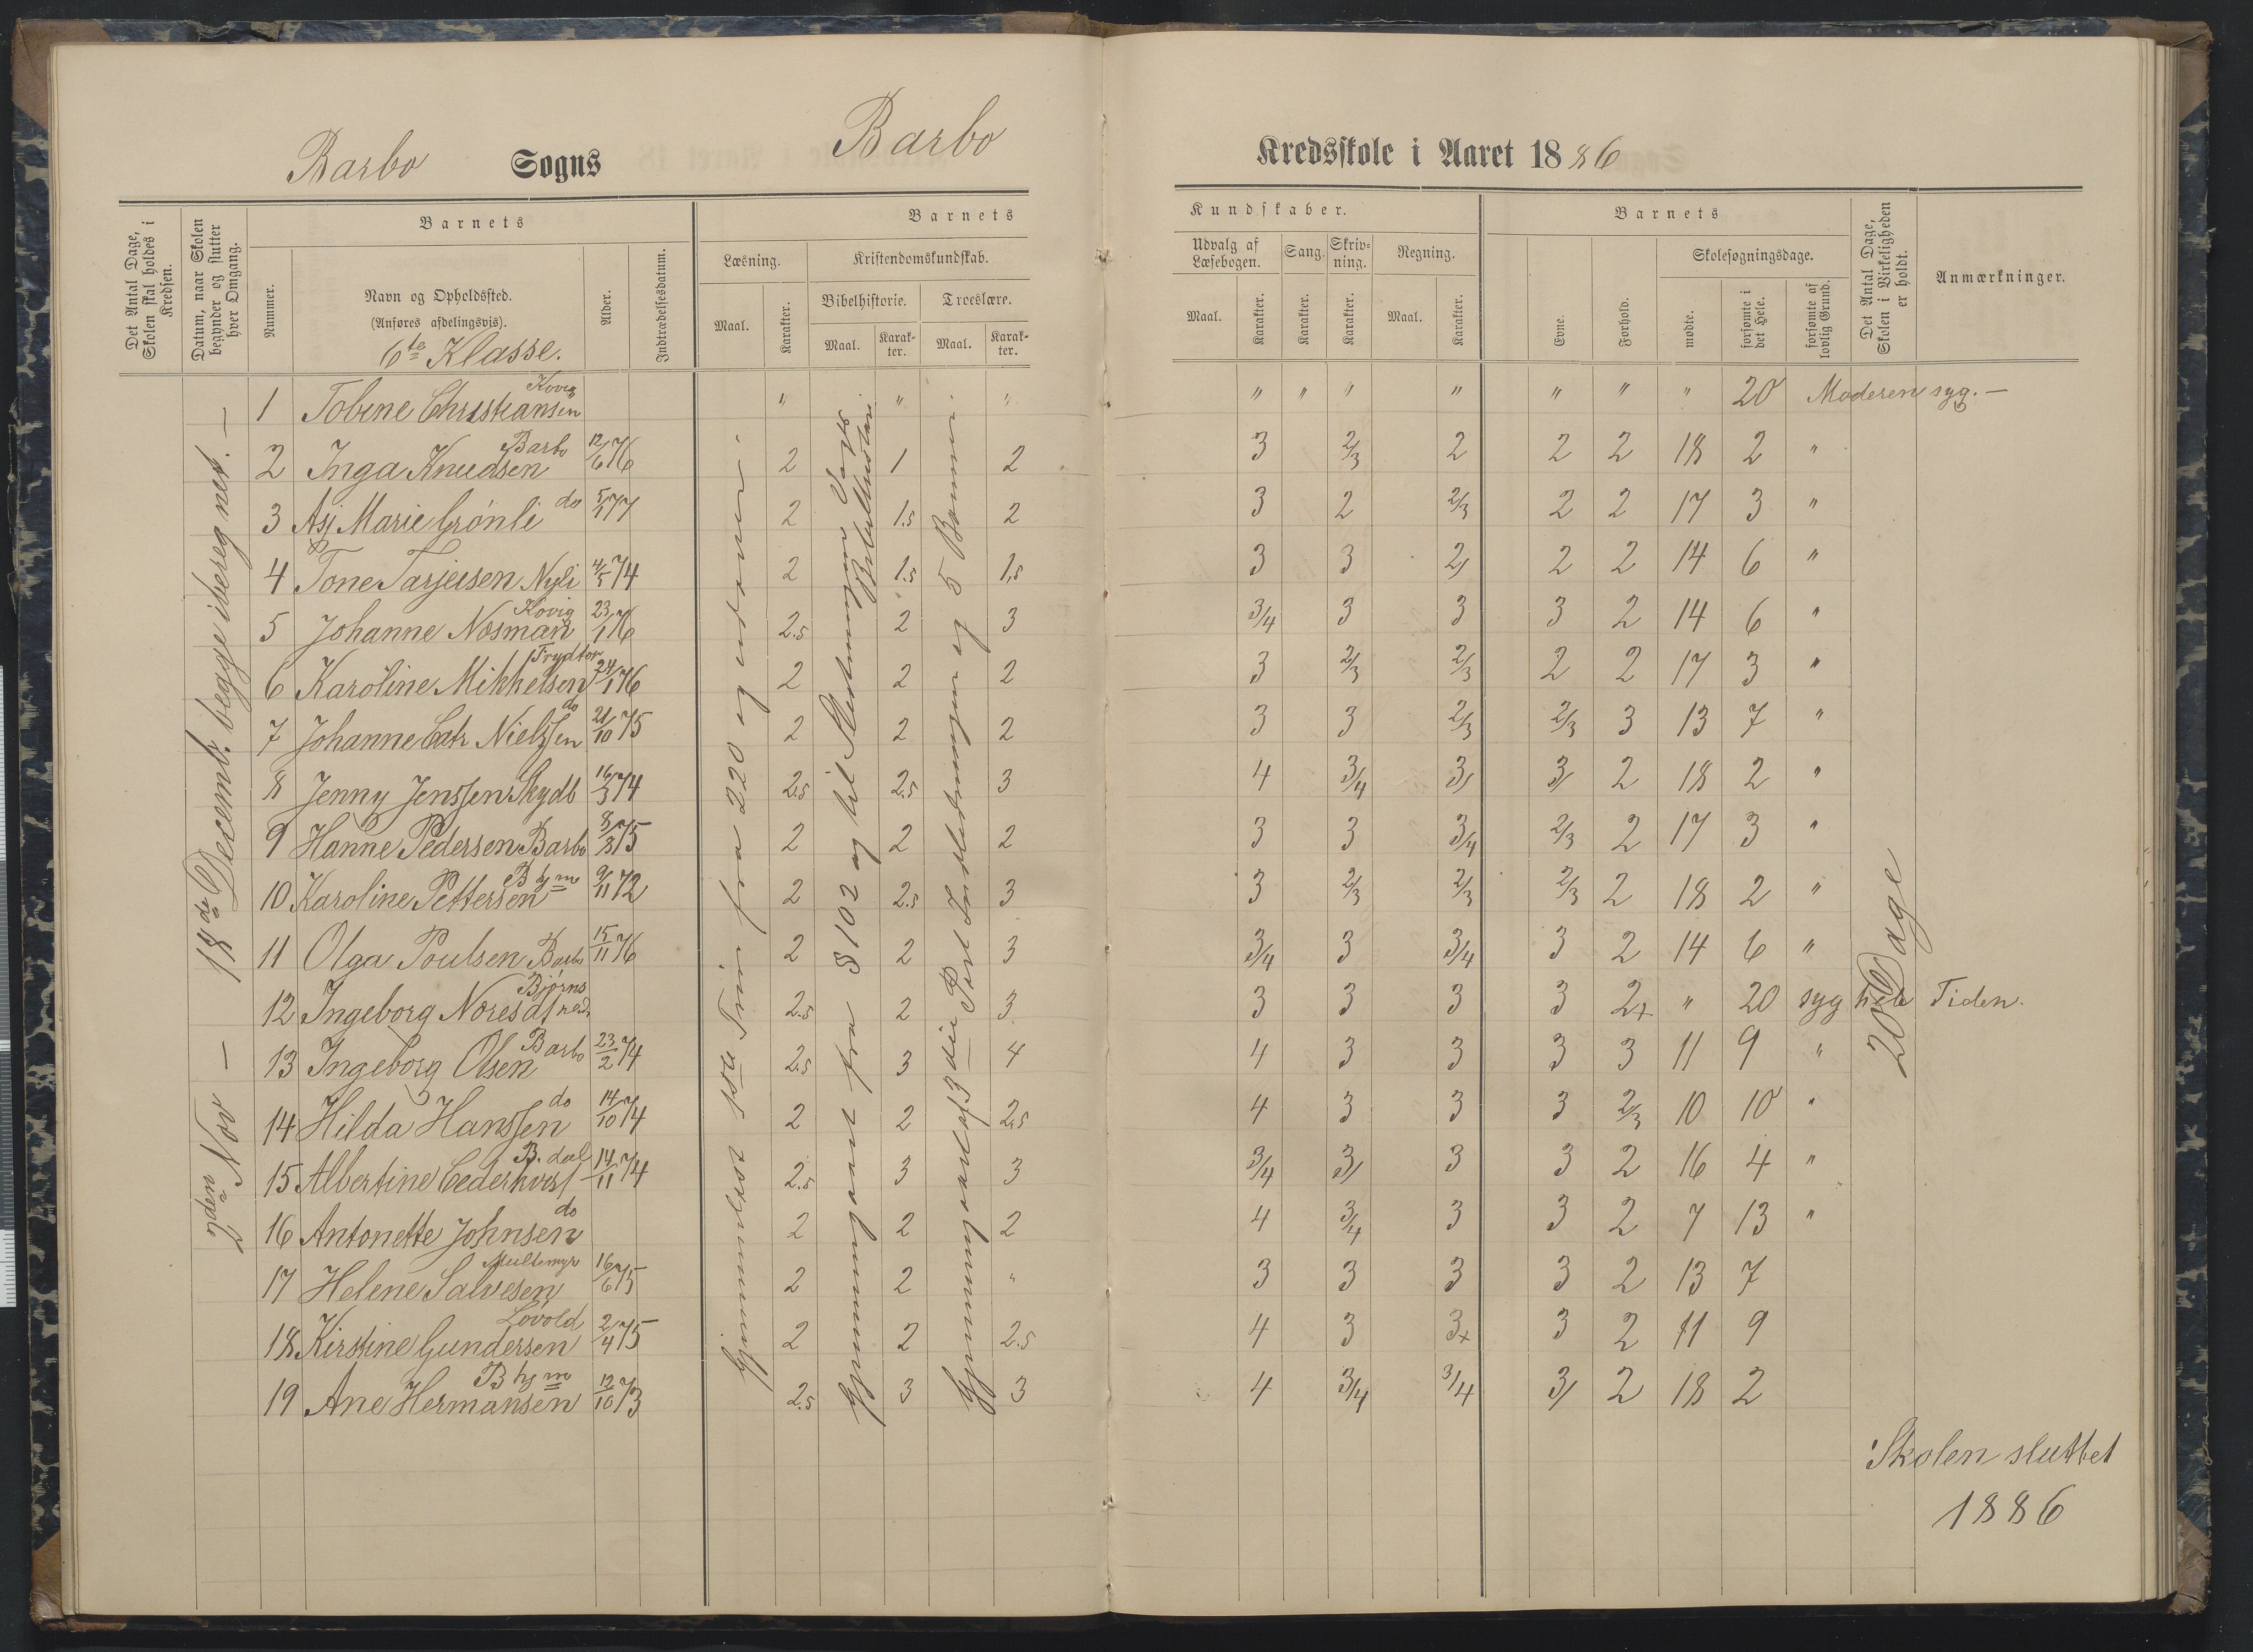 Barbo Sogns Barbo
Kredsskole i Aaret 1886
Det Antal Dage, Skolen skal holdes i Kredsen.
Datum, naar Skolen begynder og slutter hver Omgang.
Barnets
Nummer.
Navn og Opholdssted.
(Anføres afdelingsvis).
6te Klasse.
Alder.
Indtrædelsesdatum.
Barnets
Læsning.
Maal.
Karakter.
Kristendomskundskab.
Bibelhistorie.
Troeslære.
Maal.
Karakter.
Maal.
Karakter.
Kundskaber.
Udvalg af Læsebogen.
Sang.
Skrivning.
Regning.
Maal.
Karakter.
Karakter.
Karakter.
Maal.
Karakter.
Barnets
Evne.
Forhold.
Skolesøgningsdage.
mødte.
forsømte i det Hele.
forsømte af lovlig Grund.
Det Antal Dage, Skolen i Virkeligheden er holdt.
Anmærkninger.
2den Nov — 18de Decembr. begge iberegnet. —
1 Tobine Christiansen " " " " " " " " " " 20 Moderen syg. —
2 Inga Knudsen Barbo 12/6 76 2 1 2 3 2/3 2 2 2 18 2 "
3 Asj Marie Grönli do 5/1 77 2 1.5 2 3 2 2/3 2 2 17 3 "
4 Tone Tarjeisen Nyli 4/5 74 2 1.5 1,5 3 3 2/ 2 2 14 6 "
5 Johanne Nosman Kovig 23/1 76 2.5 2 3 3/4 3 3 3 2 14 6 "
6 Karoline Mikkelsen 24/1 76 2 2 2 3 2/3 2/3 2 2 17 3 "
7 Johanne Cath Nielsen do 21/10 75 2 2 2 3 3 2/3 2/3 3 13 7 "
8 Jenny Jenssen 16/3 74 2.5 2.5 3 4 3/4 3/ 3/ 2 18 2 "
9 Hanne Pedersen Barbo 8/8 75 2 2 2 3 3 3/4 2/3 2 17 3 "
10 Karoline Pettersen B hj m 9/11 72 2 2.5 3 3 2/3 2/3 2/3 2 18 2 "
11 Olga Poulsen Barbo 15/11 76 2 2 3 3/4 3 3/4 3 2 14 6 "
12 Ingeborg Nores 2.5 2 3 3 3 3 3 2+ " 20 syg hele Tiden.
13 Ingeborg Olsen Barbo 23/2 74 2.5 3 4 4 3 3 3 3 11 9 "
14 Hilda Hanssen do 14/10 74 2 2 2.5 4 3 3 3 2/3 10 10 "
15 Albertine Cederkvist B. dal 14/11 74 2.5 3 3 3/4 3/ 3 3 2 16 4 "
16 Antonette Johnsen do 2 2 2 4 3/4 3 3 2 7 13 "
17 Helene Salvesen Multemyr 16/6 75 2 2 " 3 3 3 3 2 13 7
18 Kirstine Gundersen Lövold 2/4 75 2 2 2.5 4 3 3+ 3 2 11 9
19 Ane Hermansen B hj m 12/10 73 2.5 3 3 4 3/4 3/4 3/ 2 18 2
20 Dage
Skolen sluttet
1886